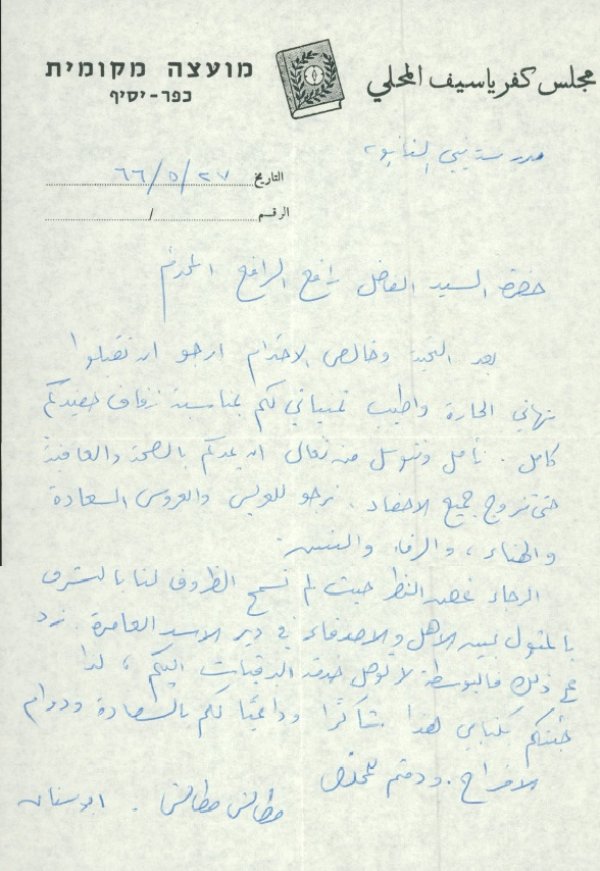 מועצה מקומית
כפר-יסיף
مجلس كفرياسيف المحلي
مدرسة يني الثانوية
التاريخ ٦٦/٥/٢٧
الرقم /
حضرة السيد الفاضل رافع الرافع المحترم
بعد التحية وخالص الاحترام ارجو ان تقبلوا
تهاني الحارة واطيب تمنياتي لكم بمناسبة زفاف حفيدكم
كامل. نأمل ونتوسل منه تعالى ان يمدكم بالصحة والعافية
حتى تزوج جميع الاحفاد. نرجو للعريس والعروس السعادة
والهناء، والرفاء والبنين.
الرجاء غض النظر حيث لم تسمح الظروف لنا بالتشرف
بالمثول بين الاهل والاصدقاء في دير الاسد العامرة. زد
على ذلك فالبوسطة لا توصل خدمة البرقيات اليكم، لذا
جئتكم بكتابي هذا شاكرًا وداعيًا لكم بالسعادة ودوام
الافراح. ودمتم للمخلص
مطانس مطانس. ابوسنان